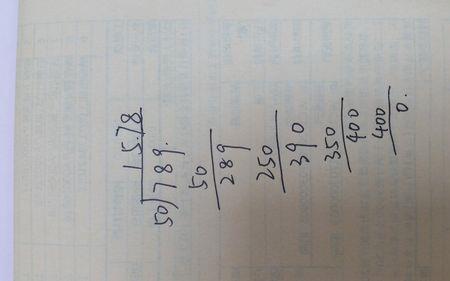 15.78
50)789.
50
289
250
390
350
400
400
0.